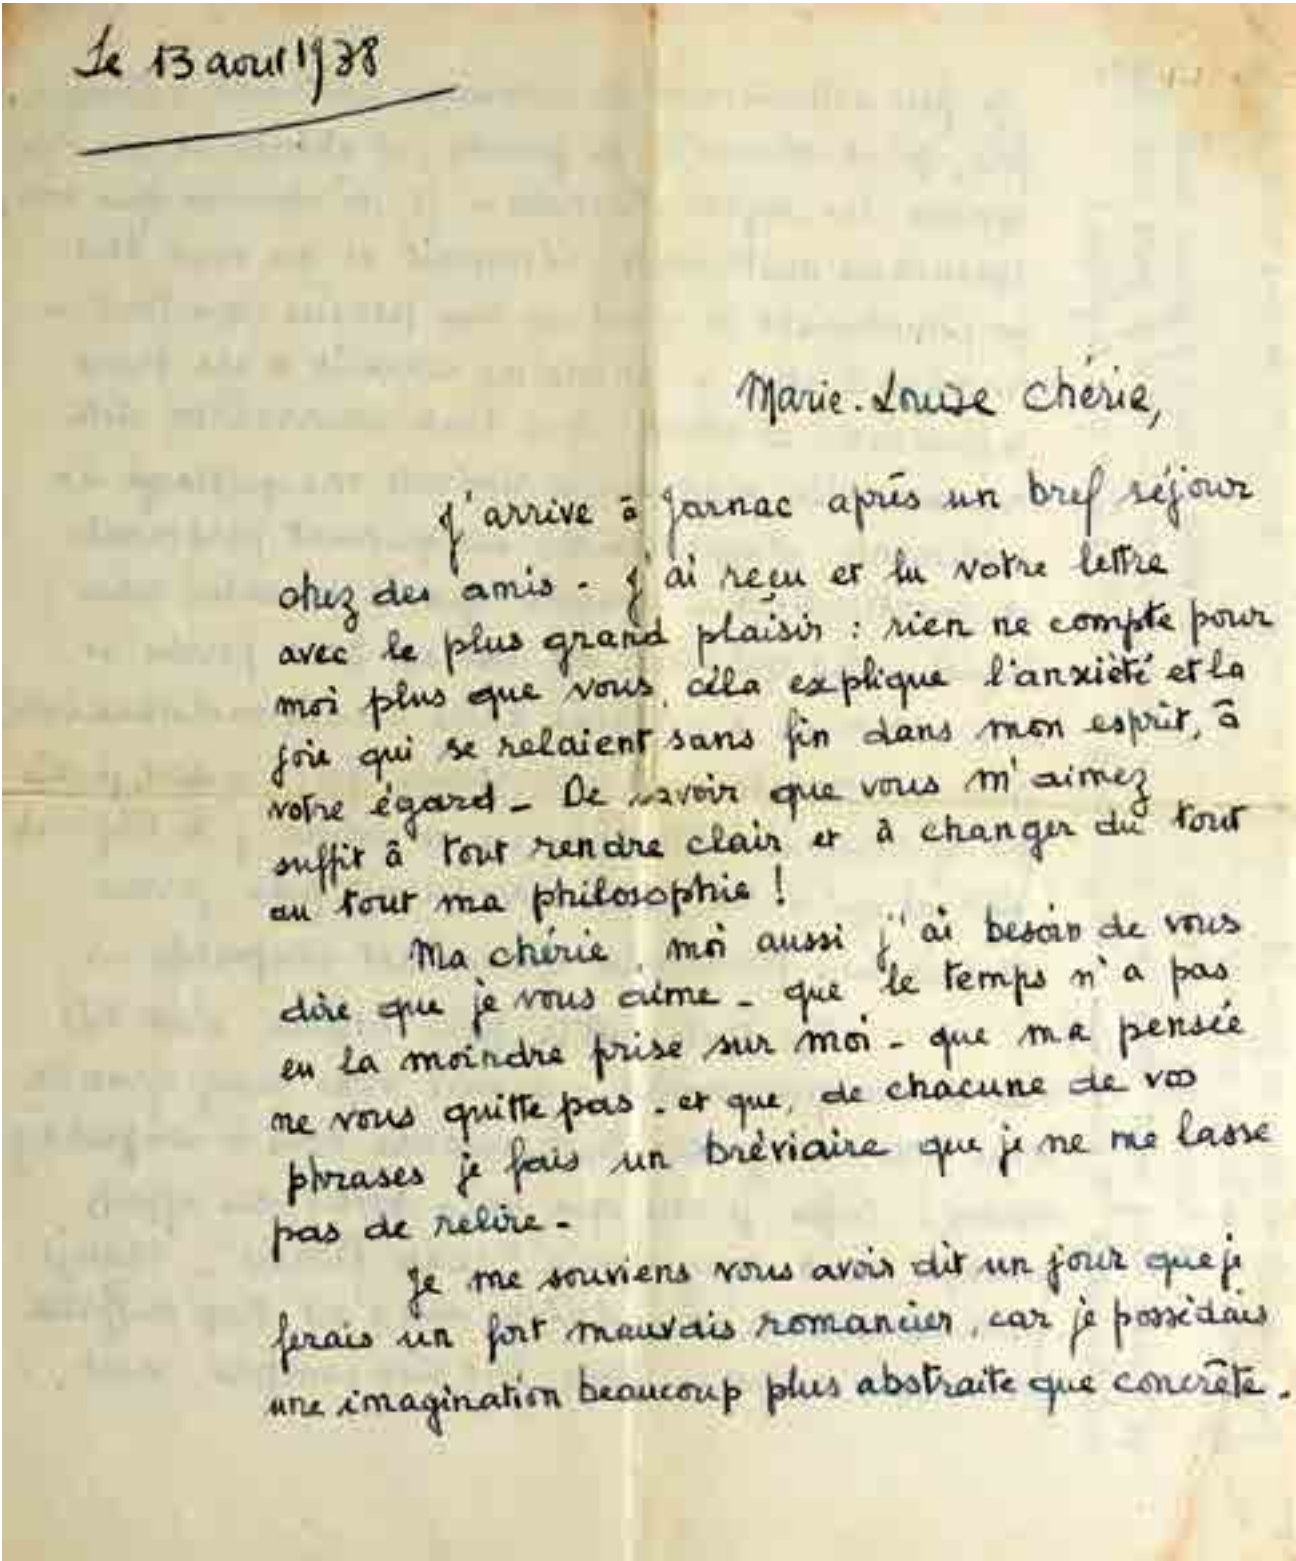 Le 13 aout 1938
Marie-Louise chérie,
J'arrive à Jarnac après un bref séjour
chez des amis - J'ai reçu et lu votre lettre
avec le plus grand plaisir : rien ne compte pour
moi plus que vous, céla explique l'anxiété et la
joie qui se relaient sans fin dans mon esprit, à
votre égard - De savoir que vous m'aimez
suffit à tout rendre clair et à changer du tout
au tout ma philosophie !
Ma chérie, moi aussi j'ai besoin de vous
dire que je vous aime - que le temps n'a pas
eu la moindre prise sur moi - que ma pensée
ne vous quitte pas - et que, de chacune de vos
phrases je fais un bréviaire que je ne me lasse
pas de relire -
Je me souviens vous avoir dit un jour que je
ferais un fort mauvais romancier, car je possédais
une imagination beaucoup plus abstraite que concrète.